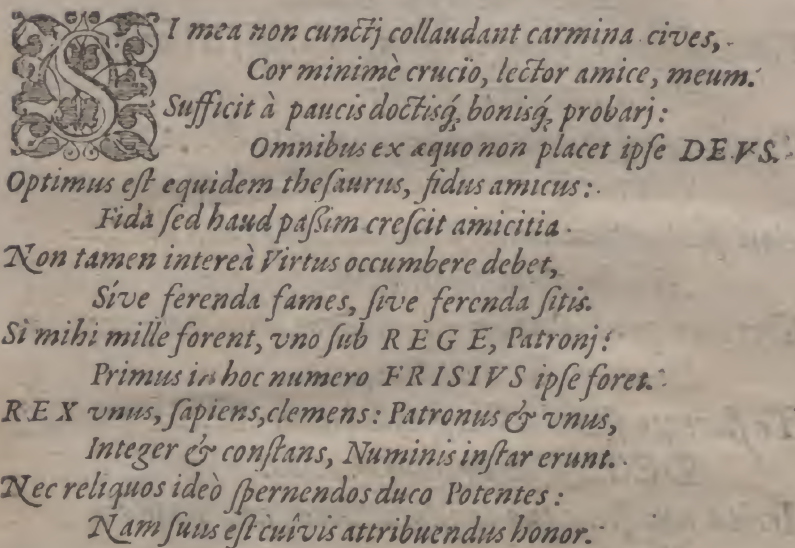 SI mea non cunctj collaudant carmina cives,
Cor minimè crucïo, lector amice, meum.
Sufficit à paucis doctisq́; bonisq́; probarj:
Omnibus ex æquo non placet ipse DEVS.
Optimus est equidem thesaurus, fidus amicus:
Fida sed haud paßim crescit amicitia.
Non tamen intereà Virtus occumbere debet,
Síve ferenda fames, sive ferenda sitis.
Si mihi mille forent, vno sub REGE, Patronj:
Primus in hoc numero FRISIVS ipse foret.
REX vnus, sapiens, clemens: Patronus & vnus,
Integer & constans, Numinis instar erunt.
Nec reliquos ideò spernendos duco Potentes:
Nam suus est cuívis attribuendus honor.